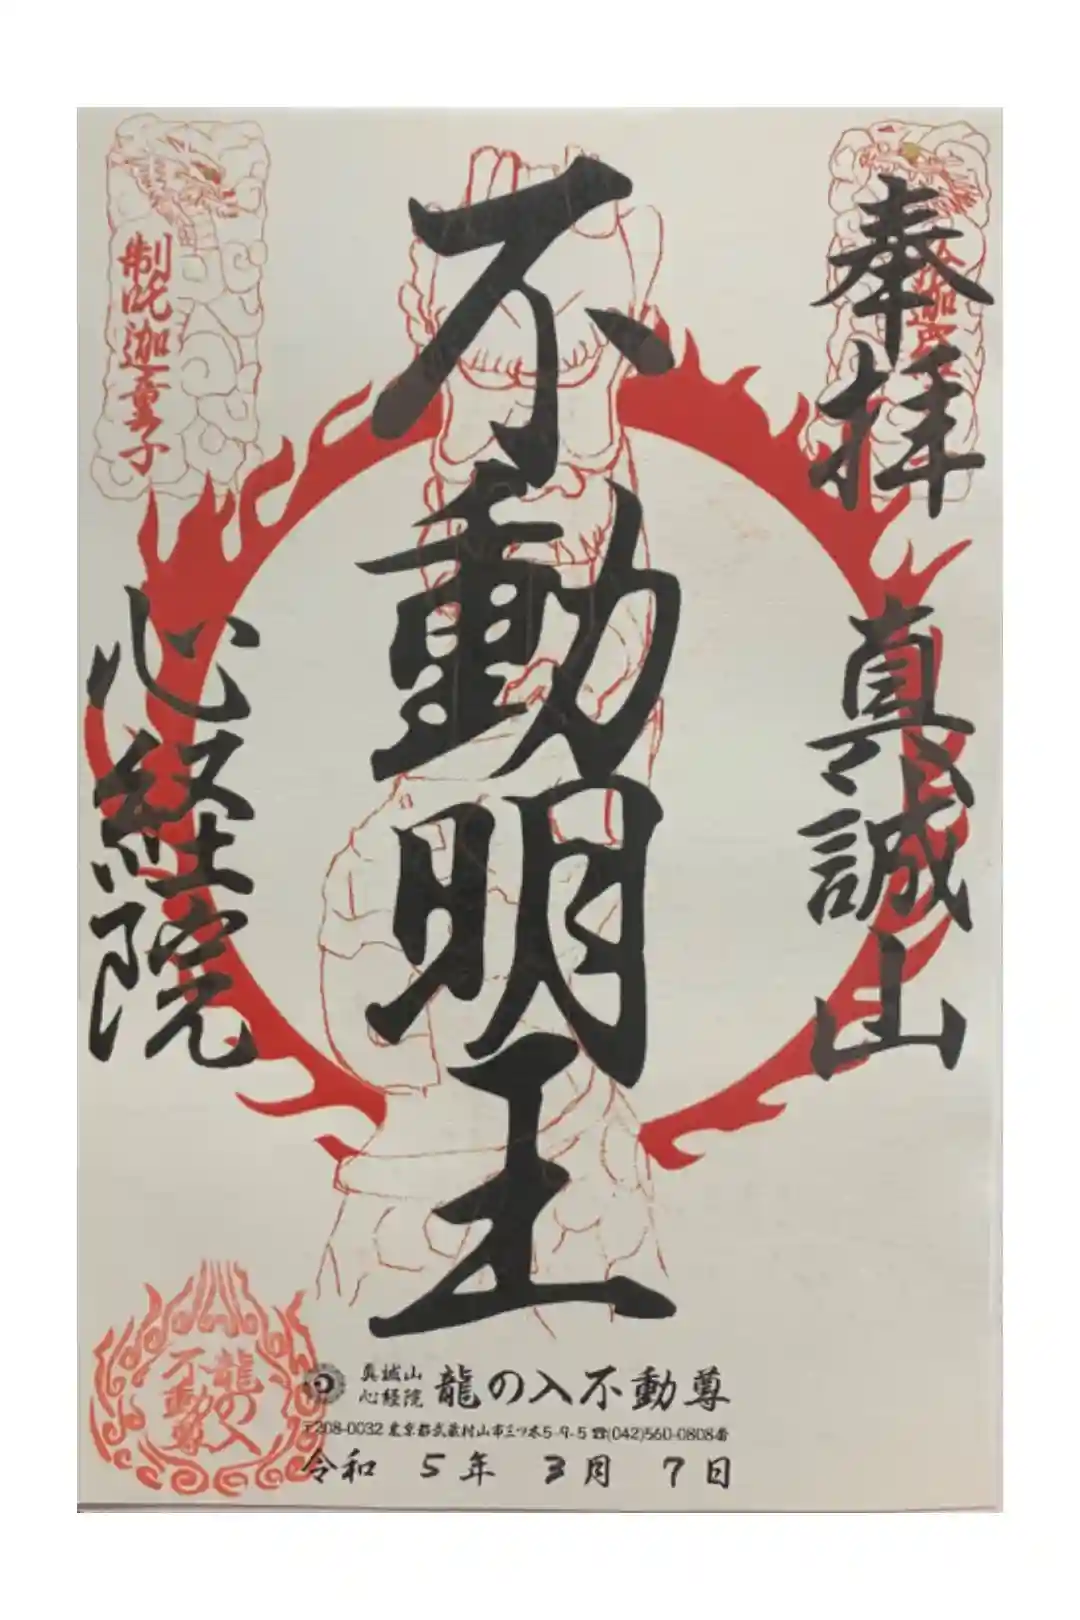 奉拝
真誠山
不動明王
心経院
制吒迦童子
龍の入
不動尊
真誠山
心経院
龍の入不動尊
〒208-0032 東京都武蔵村山市三ツ木5-9-5 ☎(042)560-0808番
令和 5年 3月 7日